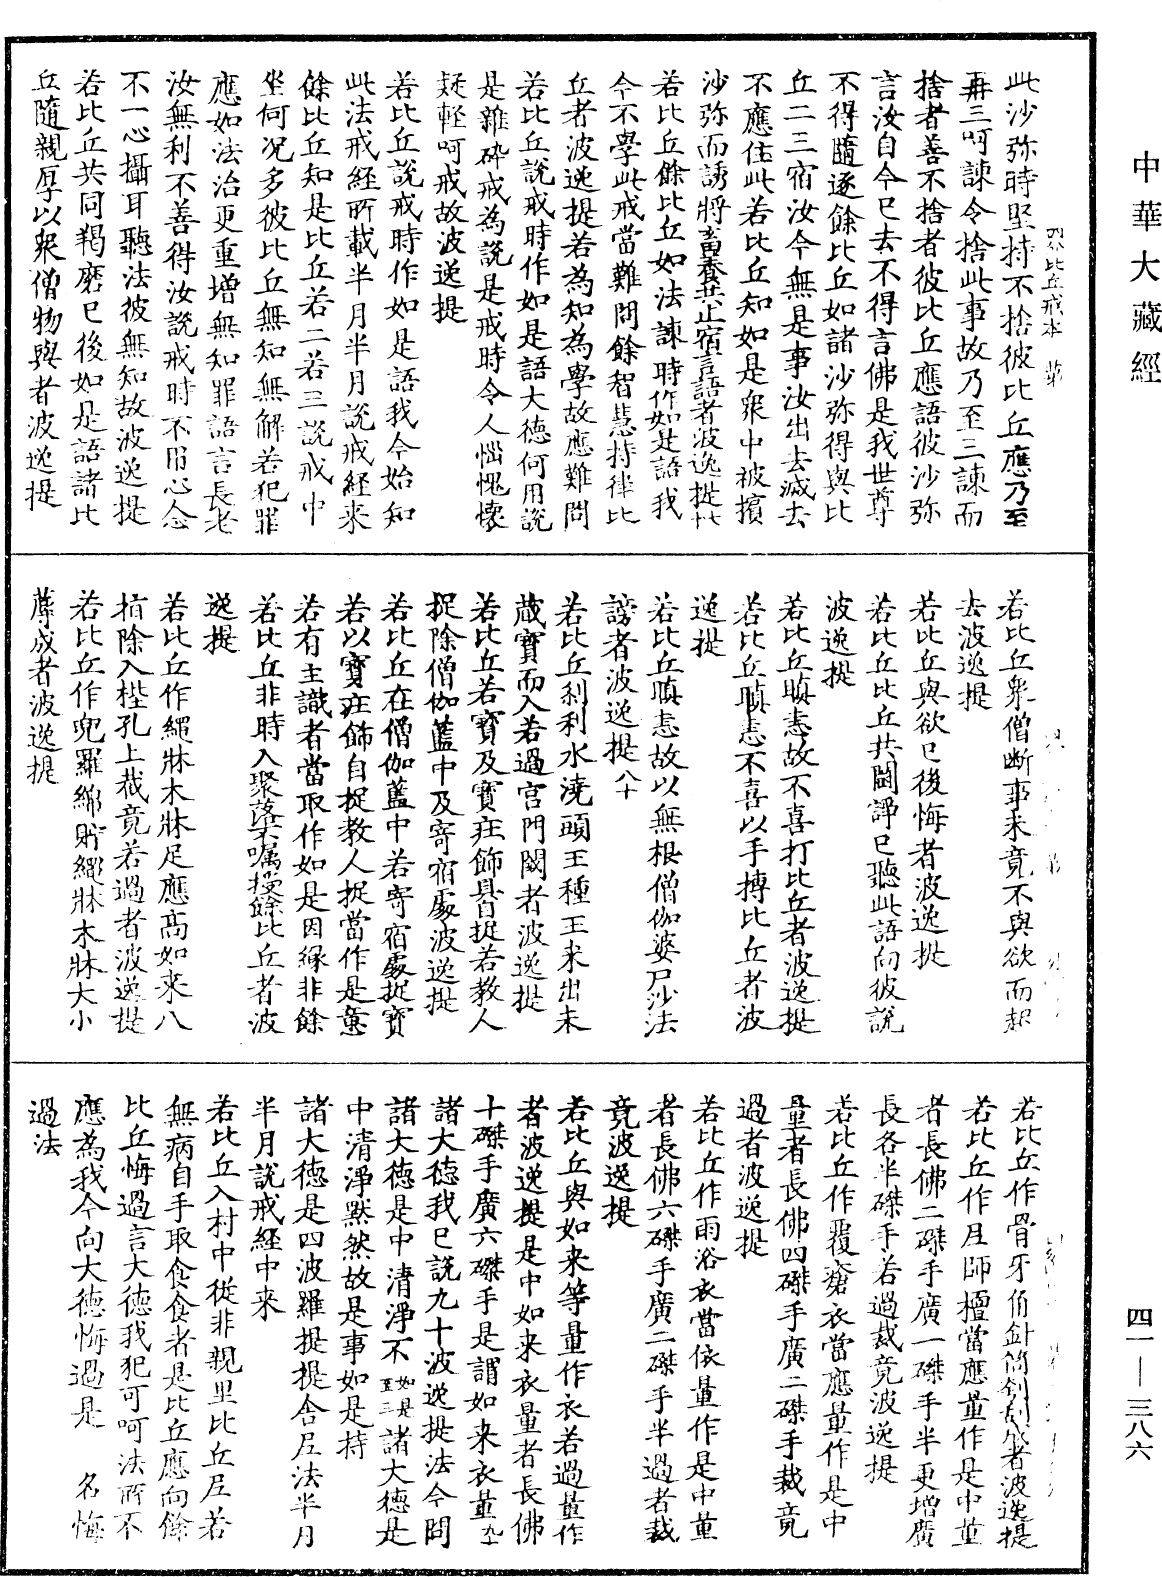 中華大藏經
四分比丘戒本
此沙弥時堅持不捨彼比丘應乃至
再三呵諫令捨此事故乃至三諫而
捨者善不捨者彼比丘應語彼沙弥
言汝自今已去不得言佛是我世尊
不得隨逐餘比丘如諸沙弥得與比
丘二三宿汝今無是事汝出去滅去
不應住此若比丘知如是衆中被擯
沙弥而誘將畜養共止宿言語者波逸提七十
若比丘餘比丘如法諫時作如是語我
今不學此戒當難問餘智慧持律比
丘者波逸提若為知為學故應難問
若比丘說戒時作如是語大德何用說
是雜碎戒為說是戒時令人惱愧懷
疑輕呵戒故波逸提
若比丘說戒時作如是語我今始知
此法戒經所載半月半月說戒經来
餘比丘知是比丘若二若三說戒中
坐何况多彼比丘無知無解若犯罪
應如法治更重增無知罪語言長老
汝無利不善得汝說戒時不用心念
不一心攝耳聽法彼無知故波逸提
若比丘共同羯磨已後如是語諸比
丘隨親厚以衆僧物與者波逸提
若比丘衆僧断事未竟不與欲而起
去波逸提
若比丘與欲已後悔者波逸提
若比丘比丘共鬪諍已聽此語向彼說
波逸提
若比丘瞋恚故不喜打比丘者波逸提
若比丘瞋恚不喜以手搏比丘者波
逸提
若比丘瞋恚故以無根僧伽婆尸沙法
謗者波逸提八十
若比丘刹利水澆頭王種王未出未
蔵寶而入若過宫門閾者波逸提
若比丘若寶及寶莊飾具自捉若教人
捉除僧伽藍中及寄宿處波逸提
若比丘在僧伽藍中若寄宿處捉寶
若以寶莊飾自捉教人捉當作是意
若有主識者當取作如是因緣非餘
若比丘非時入聚落不囑授餘比丘者波
逸提
若比丘作繩牀木牀足應高如来八
指除入梐孔上截竟若過者波逸提
若比丘作兜羅綿貯繩牀木牀大小
蓐成者波逸提
若比丘作骨牙角針筒刳刮成者波逸提
若比丘作尼師檀當應量作是中量
者長佛二磔手廣一磔手半更增廣
長各半磔手若過裁竟波逸提
若比丘作覆瘡衣當應量作是中
量者長佛四磔手廣二磔手裁竟
過者波逸提
若比丘作雨浴衣當依量作是中量
者長佛六磔手廣二磔手半過者裁
竟波逸提
若比丘與如来等量作衣若過量作
者波逸提是中如来衣量者長佛
十磔手廣六磔手是謂如来衣量九十
諸大德我已說九十波逸提法今問
諸大德是中清淨不如是至三諸大德是
中清淨默然故是事如是持
諸大德是四波羅提提舍尼法半月
半月說戒經中来
若比丘入村中從非親里比丘尼若
無病自手取食食者是比丘應向餘
比丘悔過言大德我犯可呵法所不
應為我今向大德悔過是 名悔
過法
四一—三八六